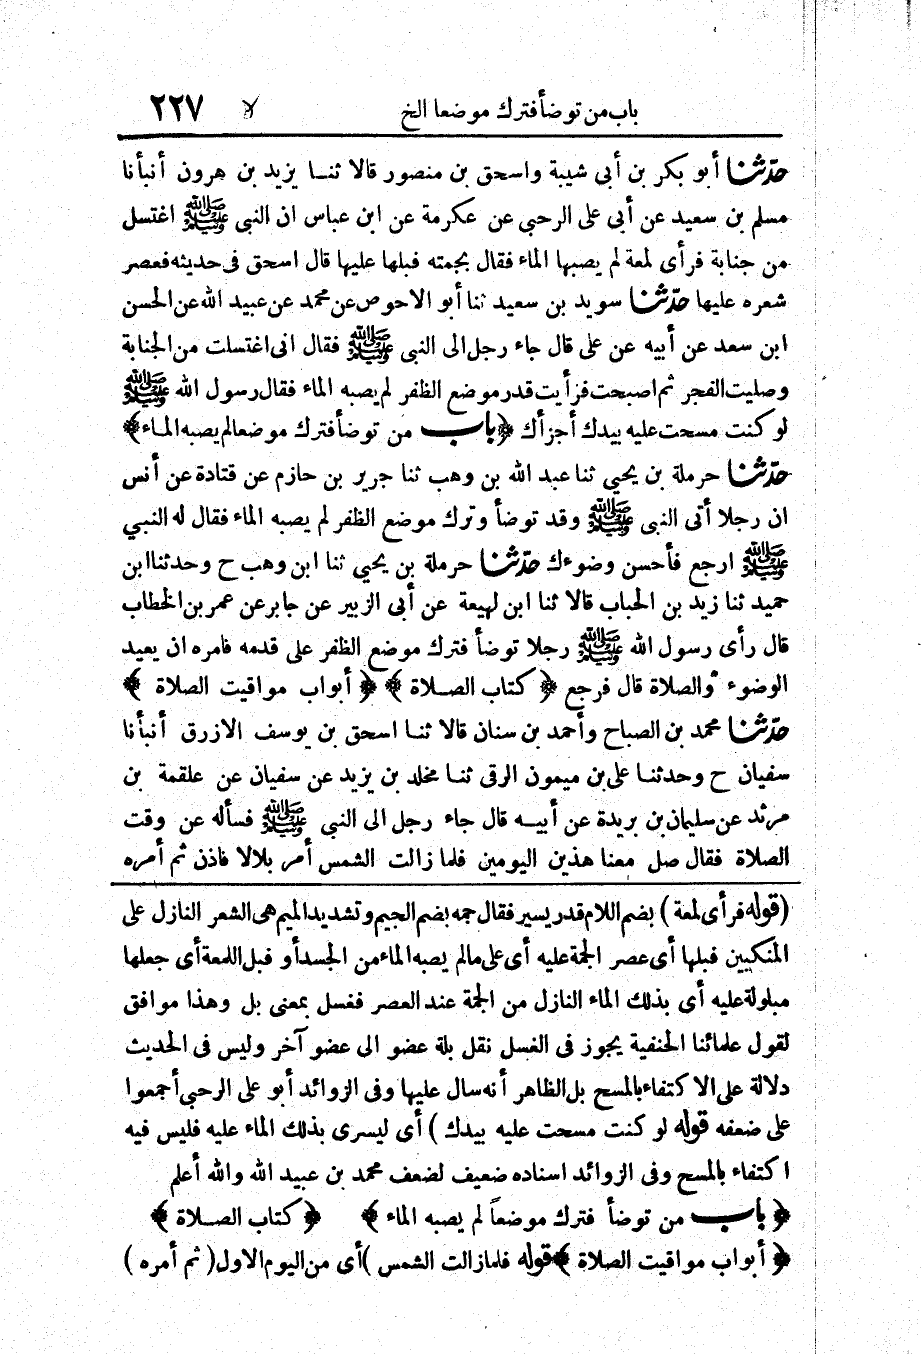 باب من توضأ فترك موضعا الخ لا ٢٢٧
حدّثنا أبو بكر بن أبي شيبة واسحق بن منصور قالا ثنا يزيد بن هرون أنبأنا
مسلم بن سعيد عن أبي على الرحبي عن عكرمة عن ابن عباس ان النبي ﷺ اغتسل
من جنابة فرأى لمعة لم يصبها الماء فقال بجمته فبلها عليها قال اسحق فى حديثه فعصر
شعره عليها حدّثنا سويد بن سعيد ثنا أبو الاحوص عن محمد عن عبيد الله عن الحسن
ابن سعد عن أبيه عن على قال جاء رجل الى النبى ﷺ فقال انى اغتسلت من الجنابة
وصليت الفجر ثم اصبحت فرأيت قدر موضع الظفر لم يصبه الماء فقال رسول الله ﷺ
لو كنت مسحت عليه بيدك أجزأك ﴿باب من توضأ فترك موضعا لم يصبه الماء﴾
حدّثنا حرملة بن يحيي ثنا عبد الله بن وهب ثنا جرير بن حازم عن قتادة عن أنس
ان رجلا أتى النبى ﷺ وقد توضأ وترك موضع الظفر لم يصبه الماء فقال له النبي
ﷺ ارجع فأحسن وضوءك حدّثنا حرملة بن يحيي ثنا ابن وهب ح وحدثنا ابن
حميد ثنا زيد بن الحباب قالا ثنا ابن لهيعة عن أبى الزبير عن جابر عن عمر بن الخطاب
قال رأى رسول الله ﷺ رجلا توضأ فترك موضع الظفر على قدمه فامره ان يعيد
الوضوء والصلاة قال فرجع ﴿كتاب الصلاة﴾ ﴿أبواب مواقيت الصلاة﴾
حدّثنا محمد بن الصباح وأحمد بن سنان قالا ثنا اسحق بن يوسف الازرق أنبأنا
سفيان ح وحدثنا على بن ميمون الرقى ثنا مخلد بن يزيد عن سفيان عن علقمة بن
مرثد عن سليمان بن بريدة عن أبيه قال جاء رجل الى النبي ﷺ فسأله عن وقت
الصلاة فقال صل معنا هذين اليومين فلما زالت الشمس أمر بلالا فاذن ثم أمره
(قوله فرأى لمعة) بضم اللام قدر يسير فقال جمه بضم الجيم وتشديد الميم هى الشعر النازل على
المنكبين فبلها أى عصر الجمة عليه أى على مالم يصبه الماء من الجسد أو فبل اللمعة أى جعلها
مبلولة عليه أى بذلك الماء النازل من الجمة عند العصر فغسل بمعنى بل وهذا موافق
لقول علمائنا الحنفية يجوز فى الغسل نقل بلة عضو الى عضو آخر وليس فى الحديث
دلالة على الاكتفاء بالمسح بل الظاهر أنه سال عليها وفى الزوائد أبو على الرحبى أجمعوا
على ضعفه قوله لو كنت مسحت عليه بيدك) أى ليسرى بذلك الماء عليه فليس فيه
اكتفاء بالمسح وفى الزوائد اسناده ضعيف لضعف محمد بن عبيد الله والله أعلم
﴿باب من توضأ فترك موضعاً لم يصبه الماء﴾ ﴿كتاب الصلاة﴾
﴿أبواب مواقيت الصلاة﴾ قوله فلما زالت الشمس) أى من اليوم الاول (ثم أمره)